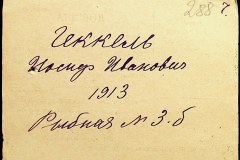 288
Геккель
Иосиф Иванович
1913
Рыбная № 3.б